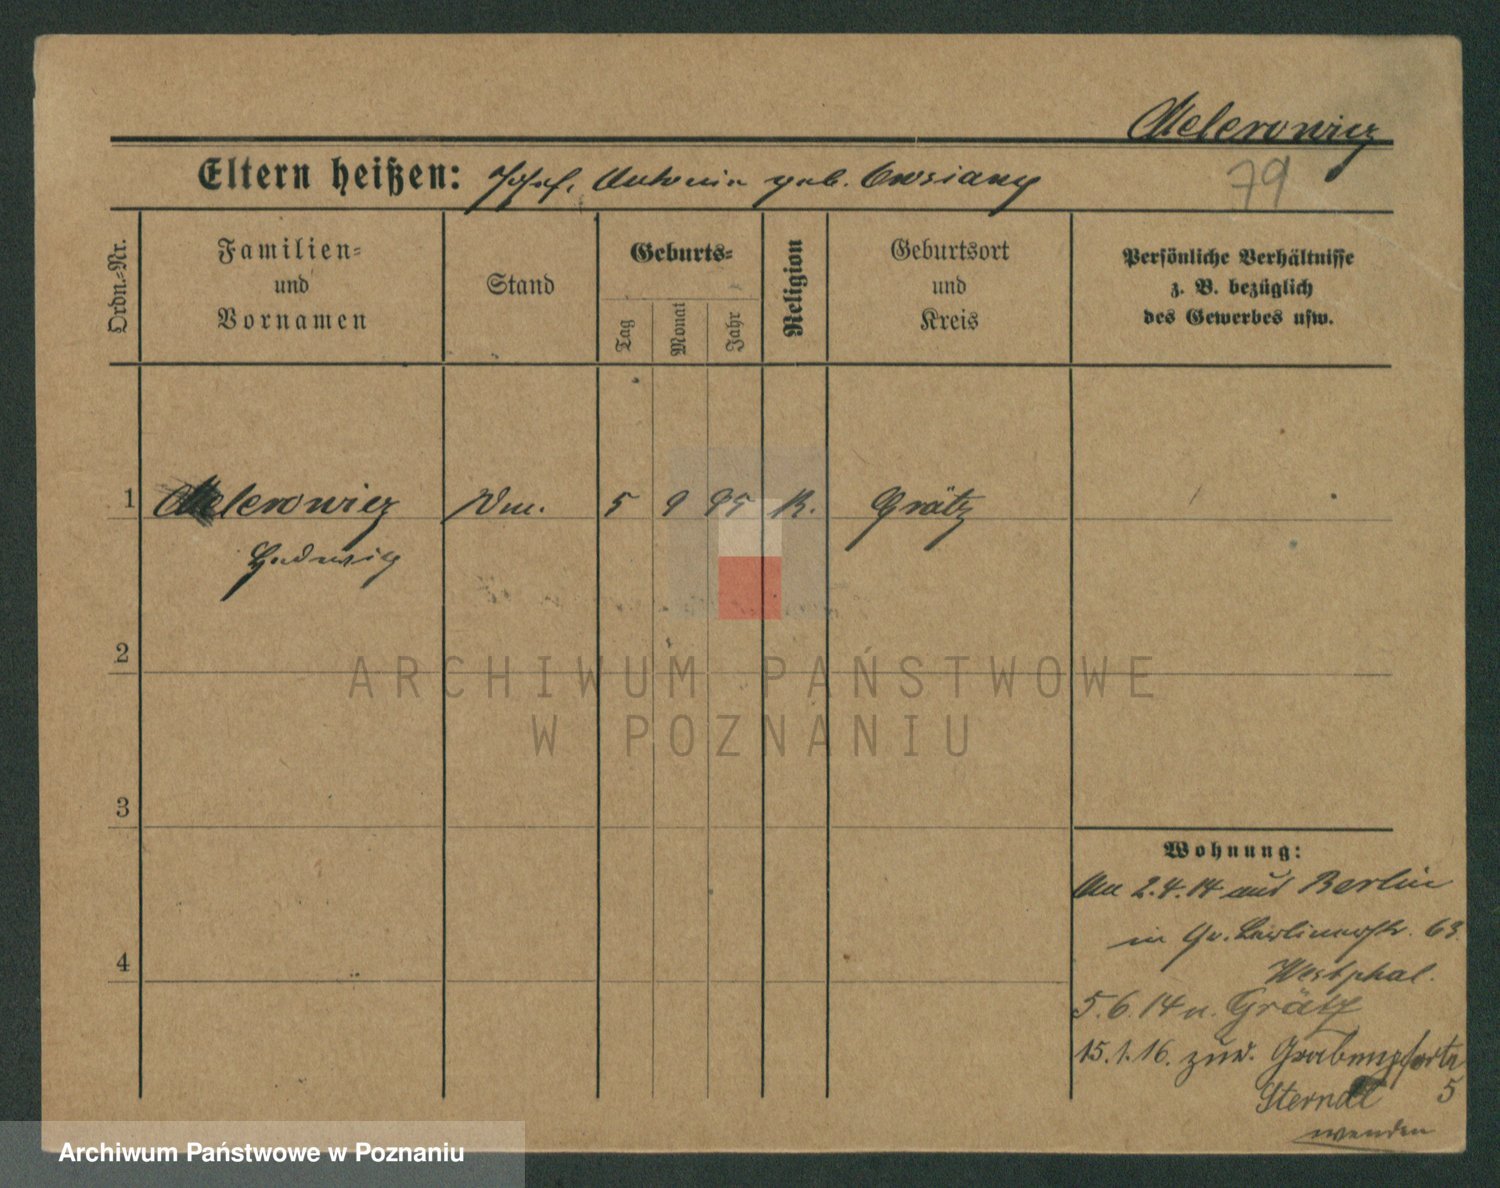 Melerowicz
79
Eltern heißen: Josef, Antonie geb.
Ordn.-Nr.
Familien-
und
Vornamen
Stand
Geburts-
Tag
Monat
Jahr
Religion
Geburtsort
und
Kreis
Persönliche Verhältnisse
z. B. bezüglich
des Gewerbes usw.
1 Melerowicz 5 9 95 K. Grätz
Hedwig
2
ARCHIWUM PAŃSTWOWE
W POZNANIU
3
Wohnung:
An 2.4.14 aus Berlin
in Gr. Berlinerstr. 63
4
Westphal.
5.6.14 n. Grätz
15.1.16. zur. Grabenpforte
5
wenden
Archiwum Państwowe w Poznaniu